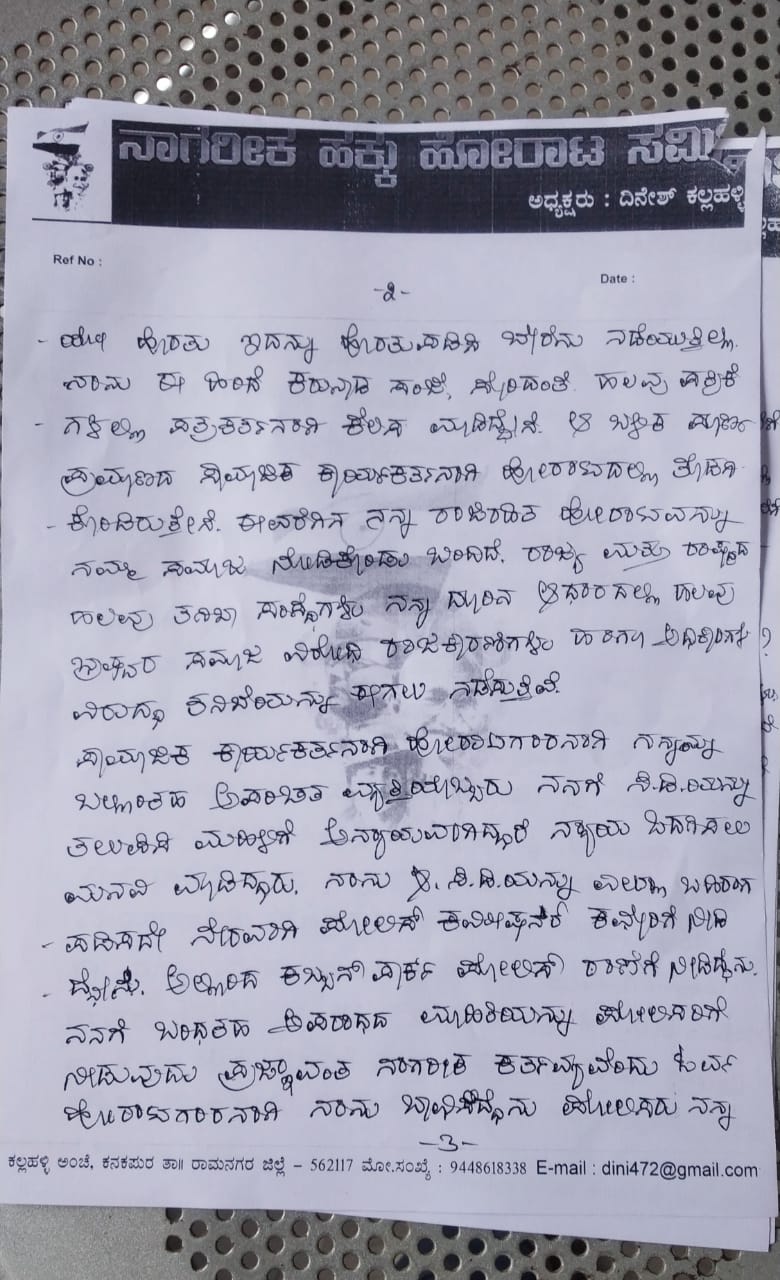 ನಾಗರೀಕ ಹಕ್ಕು ಹೋರಾಟ ಸಮಿ
ಅಧ್ಯಕ್ಷರು : ದಿನೇಶ್ ಕಲ್ಲಹಳ್ಳಿ
Ref No :
Date :
-೨-
ಹೊರತು ಇದನ್ನು ಹೊರತುಪಡಿಸಿ ಬೇರೆನು ನಡೆಯುತ್ತಿಲ್ಲ.
ನಾನು ಈ ಹಿಂದೆ ಕರುನಾಡ ಸಂಜೆ, ಸೇರಿದಂತೆ ಹಲವು ಪತ್ರಿಕೆ
ಗಳಲ್ಲಿ ಪತ್ರಕರ್ತನಾಗಿ ಕೆಲಸ ಮಾಡಿದ್ದೇನೆ. ಆ ಬಳಿಕ ಪೂರ್ಣ
ಪ್ರಮಾಣದ ಸಾಮಾಜಿಕ ಕಾರ್ಯಕರ್ತನಾಗಿ ಹೋರಾಟದಲ್ಲಿ ತೊಡಗಿ
ಕೊಂಡಿರುತ್ತೇನೆ. ಈವರೆಗಿನ ನನ್ನ ರಾಜಿರಹಿತ ಹೋರಾಟವನ್ನು
ನಮ್ಮ ಸಮಾಜ ನೋಡಿಕೊಂಡು ಬಂದಿದೆ. ರಾಜ್ಯ ಮತ್ತು ರಾಷ್ಟ್ರದ
ಹಲವು ತನಿಖಾ ಸಂಸ್ಥೆಗಳು ನನ್ನ ದೂರಿನ ಆಧಾರದಲ್ಲಿ ಹಲವು
ಭ್ರಷ್ಟರ ಸಮಾಜ ವಿರೋಧಿ ರಾಜಕಾರಣಿಗಳು ಹಾಗೂ ಅಧಿಕಾರಿಗಳ
ವಿರುದ್ಧ ತನಿಖೆಯನ್ನು ಈಗಲು ನಡೆಸುತ್ತಿವೆ.
ಸಾಮಾಜಿಕ ಕಾರ್ಯಕರ್ತನಾಗಿ ಹೋರಾಟಗಾರನಾಗಿ ನನ್ನನ್ನು
ಬಲ್ಲಂತಹ ಅಪರಿಚಿತ ವ್ಯಕ್ತಿಯೊಬ್ಬರು ನನಗೆ ಸಿ.ಡಿ.ಯನ್ನು
ತಲುಪಿಸಿ ಮಹಿಳೆಗೆ ಅನ್ಯಾಯವಾಗಿದ್ದು ನ್ಯಾಯ ಒದಗಿಸಲು
ಮನವಿ ಮಾಡಿದ್ದರು. ನಾನು ಆ ಸಿ.ಡಿ.ಯನ್ನು ಎಲ್ಲೂ ಬಹಿರಂಗ
ಪಡಿಸದೇ ನೇರವಾಗಿ ಪೋಲಿಸ್ ಕಮೀಷನರ್ ಕಚೇರಿಗೆ ನೀಡಿ
ದ್ದೇನೆ. ಅಲ್ಲಿಂದ ಕಬ್ಬನ್ ಪಾರ್ಕ್ ಪೋಲಿಸ್ ಠಾಣೆಗೆ ನೀಡಿದ್ದೆನು.
ನನಗೆ ಬಂದಂತಹ ಅಪರಾಧದ ಮಾಹಿತಿಯನ್ನು ಪೋಲಿಸರಿಗೆ
ನೀಡುವುದು ಪ್ರಜ್ಞಾವಂತ ನಾಗರೀಕ ಕರ್ತವ್ಯವೆಂದು ಓರ್ವ
ಹೋರಾಟಗಾರನಾಗಿ ನಾನು ಭಾವಿಸಿದ್ದೆನು ಪೋಲಿಸರು ನನ್ನ
-3-
ಕಲ್ಲಹಳ್ಳಿ ಅಂಚೆ, ಕನಕಪುರ ತಾ॥ ರಾಮನಗರ ಜಿಲ್ಲೆ – 562117 ಮೋ.ಸಂಖ್ಯೆ : 9448618338 E-mail : dini472@gmail.com